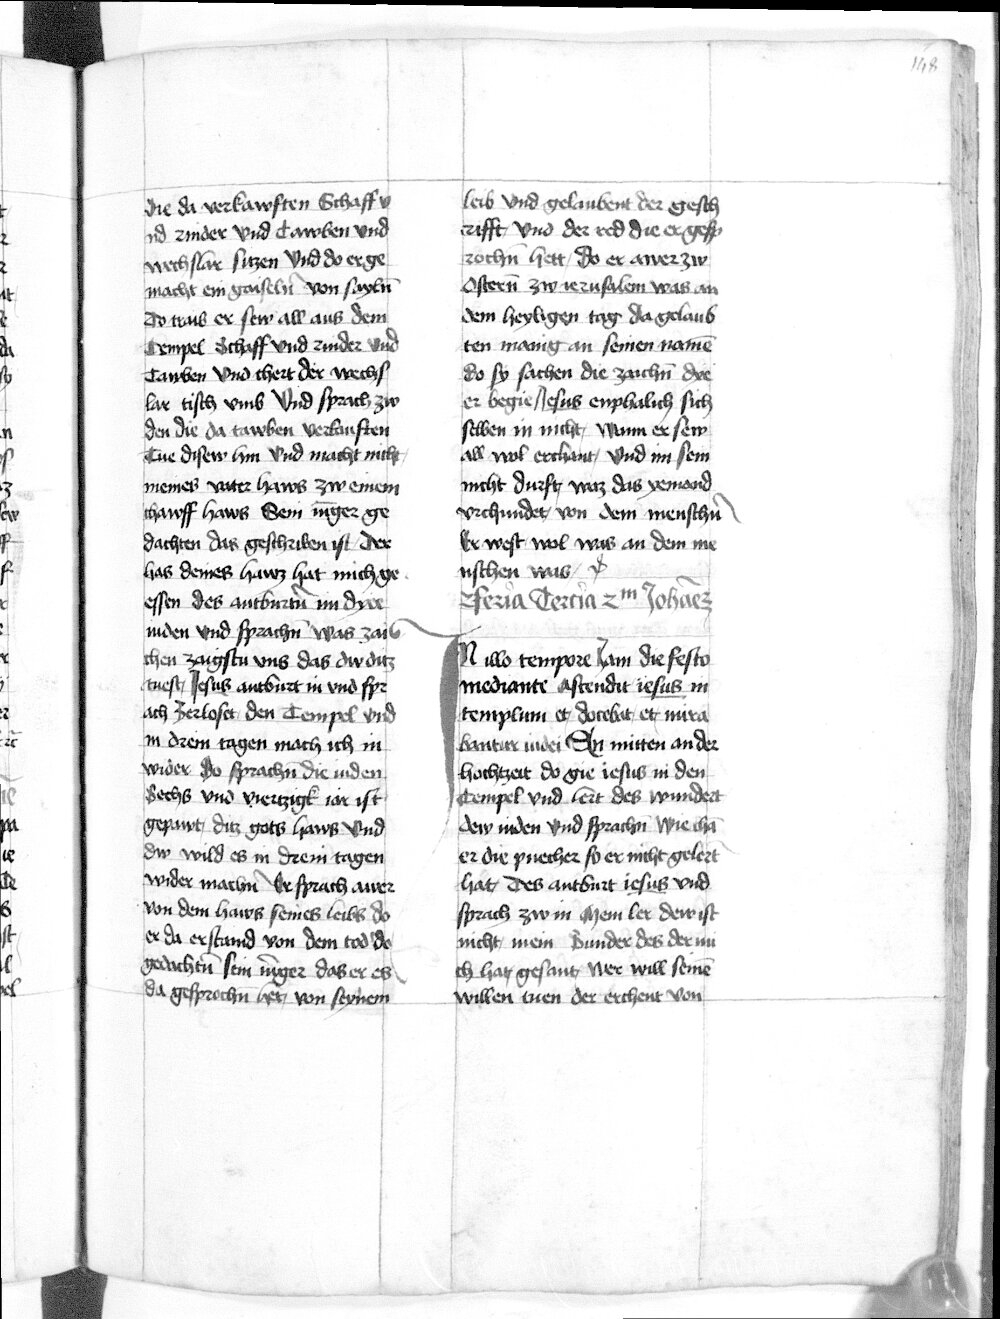 148
die da verkawften Schaff v
nd rinder vnd Tawben vnd
wechslar sitzen Vnd do er ge
macht ein gaiseln von sayln̄
Do traib er sew all aus dem
Tempel Schaff vnd rinder vnd
Tauben vnd chert der wechs
lar tisch vmb Vnd sprach zw
den die da tawben verkauften
Tuе disew hin vnd macht nicht
meines vater haws zw einem
chawff haws Sein iūger ge
dachten das geschriben ist Der
has deines hawz hat mich ge
essen des antburtn̄ im dye
iuden vnd sprachn̄ was zai
chen zaigstu vns das dw ditz
tuest Jesus antburt in vnd spr
ach Zerloset den Tempel vnd
in drein tagen mach ich in
wider Do sprachn̄ die iuden
Sechs vnd viertzigk iar ist
gepawt ditz gots haws Vnd
dw wild es in drein tagen
wider machn̄ Er sprach awer
von dem haws seines leibs do
er da erstand von dem tod do
gedachtn̄ sein iūger das er es
da gesprochn̄ het von seynem
leib vnd gelaubent der gesch
rifft vnd der red die er gesp
rochn̄ hett Do er awer zw
Ostern̄ zw ierusalem was an
dem heyligen tag da gelaub
ten manig an seinen namē
do sy sachen die zaichn̄ dye
er begie Jesus enphalich sich
selben in nicht Wann er sew
all wol erchant Vnd im sein
nicht durft waz das yemand
vrchundet von dem menschn̄
Er west wol was an dem me
nschen was
Feria Tercia 2m Johāez
IN illo tempore Jam die festo
mediante ascendit iesus in
templum et docebat et mira
bantur iudei An mitten an der
hochtzeit do gie iesus in den
Tempel vnd lert des wundert
dew iuden vnd sprachn̄ Wie chā
er die puecher so er nicht gelert
hat Des antburt iesus vnd
sprach zw in Mein ler dew ist
nicht mein Sunder des der mi
ch hat gesant Wer will seinē
willen tuen der erchent von